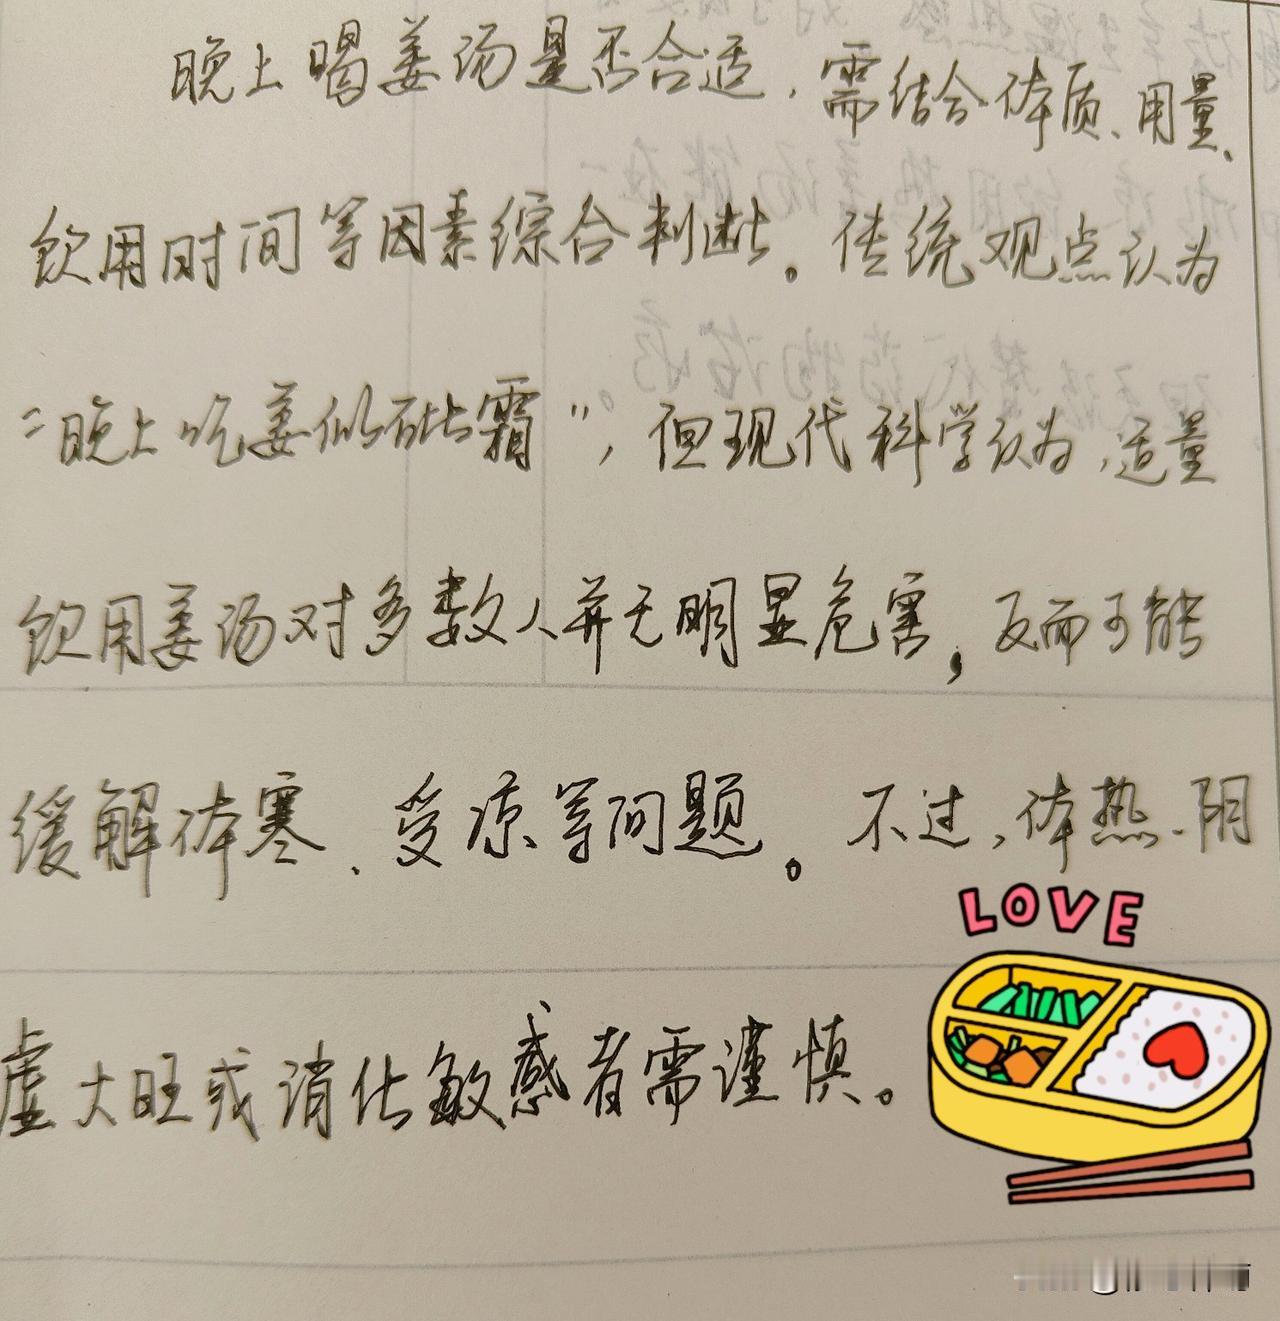 晚上喝姜汤是否合适，需结合体质、用量、
饮用时间等因素综合判断。传统观点认为
“晚上吃姜似砒霜”，但现代科学认为，适量
饮用姜汤对多数人并无明显危害，反而可能
缓解体寒、受凉等问题。不过，体热、阴
LOVE
虚火旺或消化敏感者需谨慎。